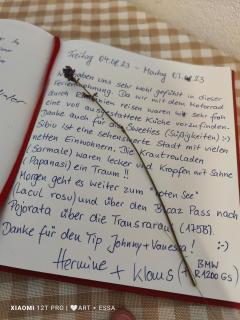 Freitag 04.08.23 - Montag 07.08.23
haben uns sehr wohl gefühlt in dieser
Ferienwohnung. Da wir mit dem Motorrad
durch Rumänien reisen waren wir sehr froh
eine voll ausgestattete Küche vorzufinden.
Danke auch für die Sweeties (Süßigkeiten) :-)
Sibiu ist eine sehenswerte Stadt mit vielen
netten Einwohnern. Die Krautrouladen
(Sarmale) waren lecker und Krapfen mit Sahne
(Papanasi) ein Traum !!
Morgen geht es weiter zum "Roten See"
(Lacul rosu) und über den Bicaz Pass nach
Pojorata über die Transrarau (175B).
Danke für den Tip Johnny + Vanessa ! :-)
Hermine + Klaus (+ BMW
R1200 GS)
XIAOMI 12T PRO | ART + ESSA